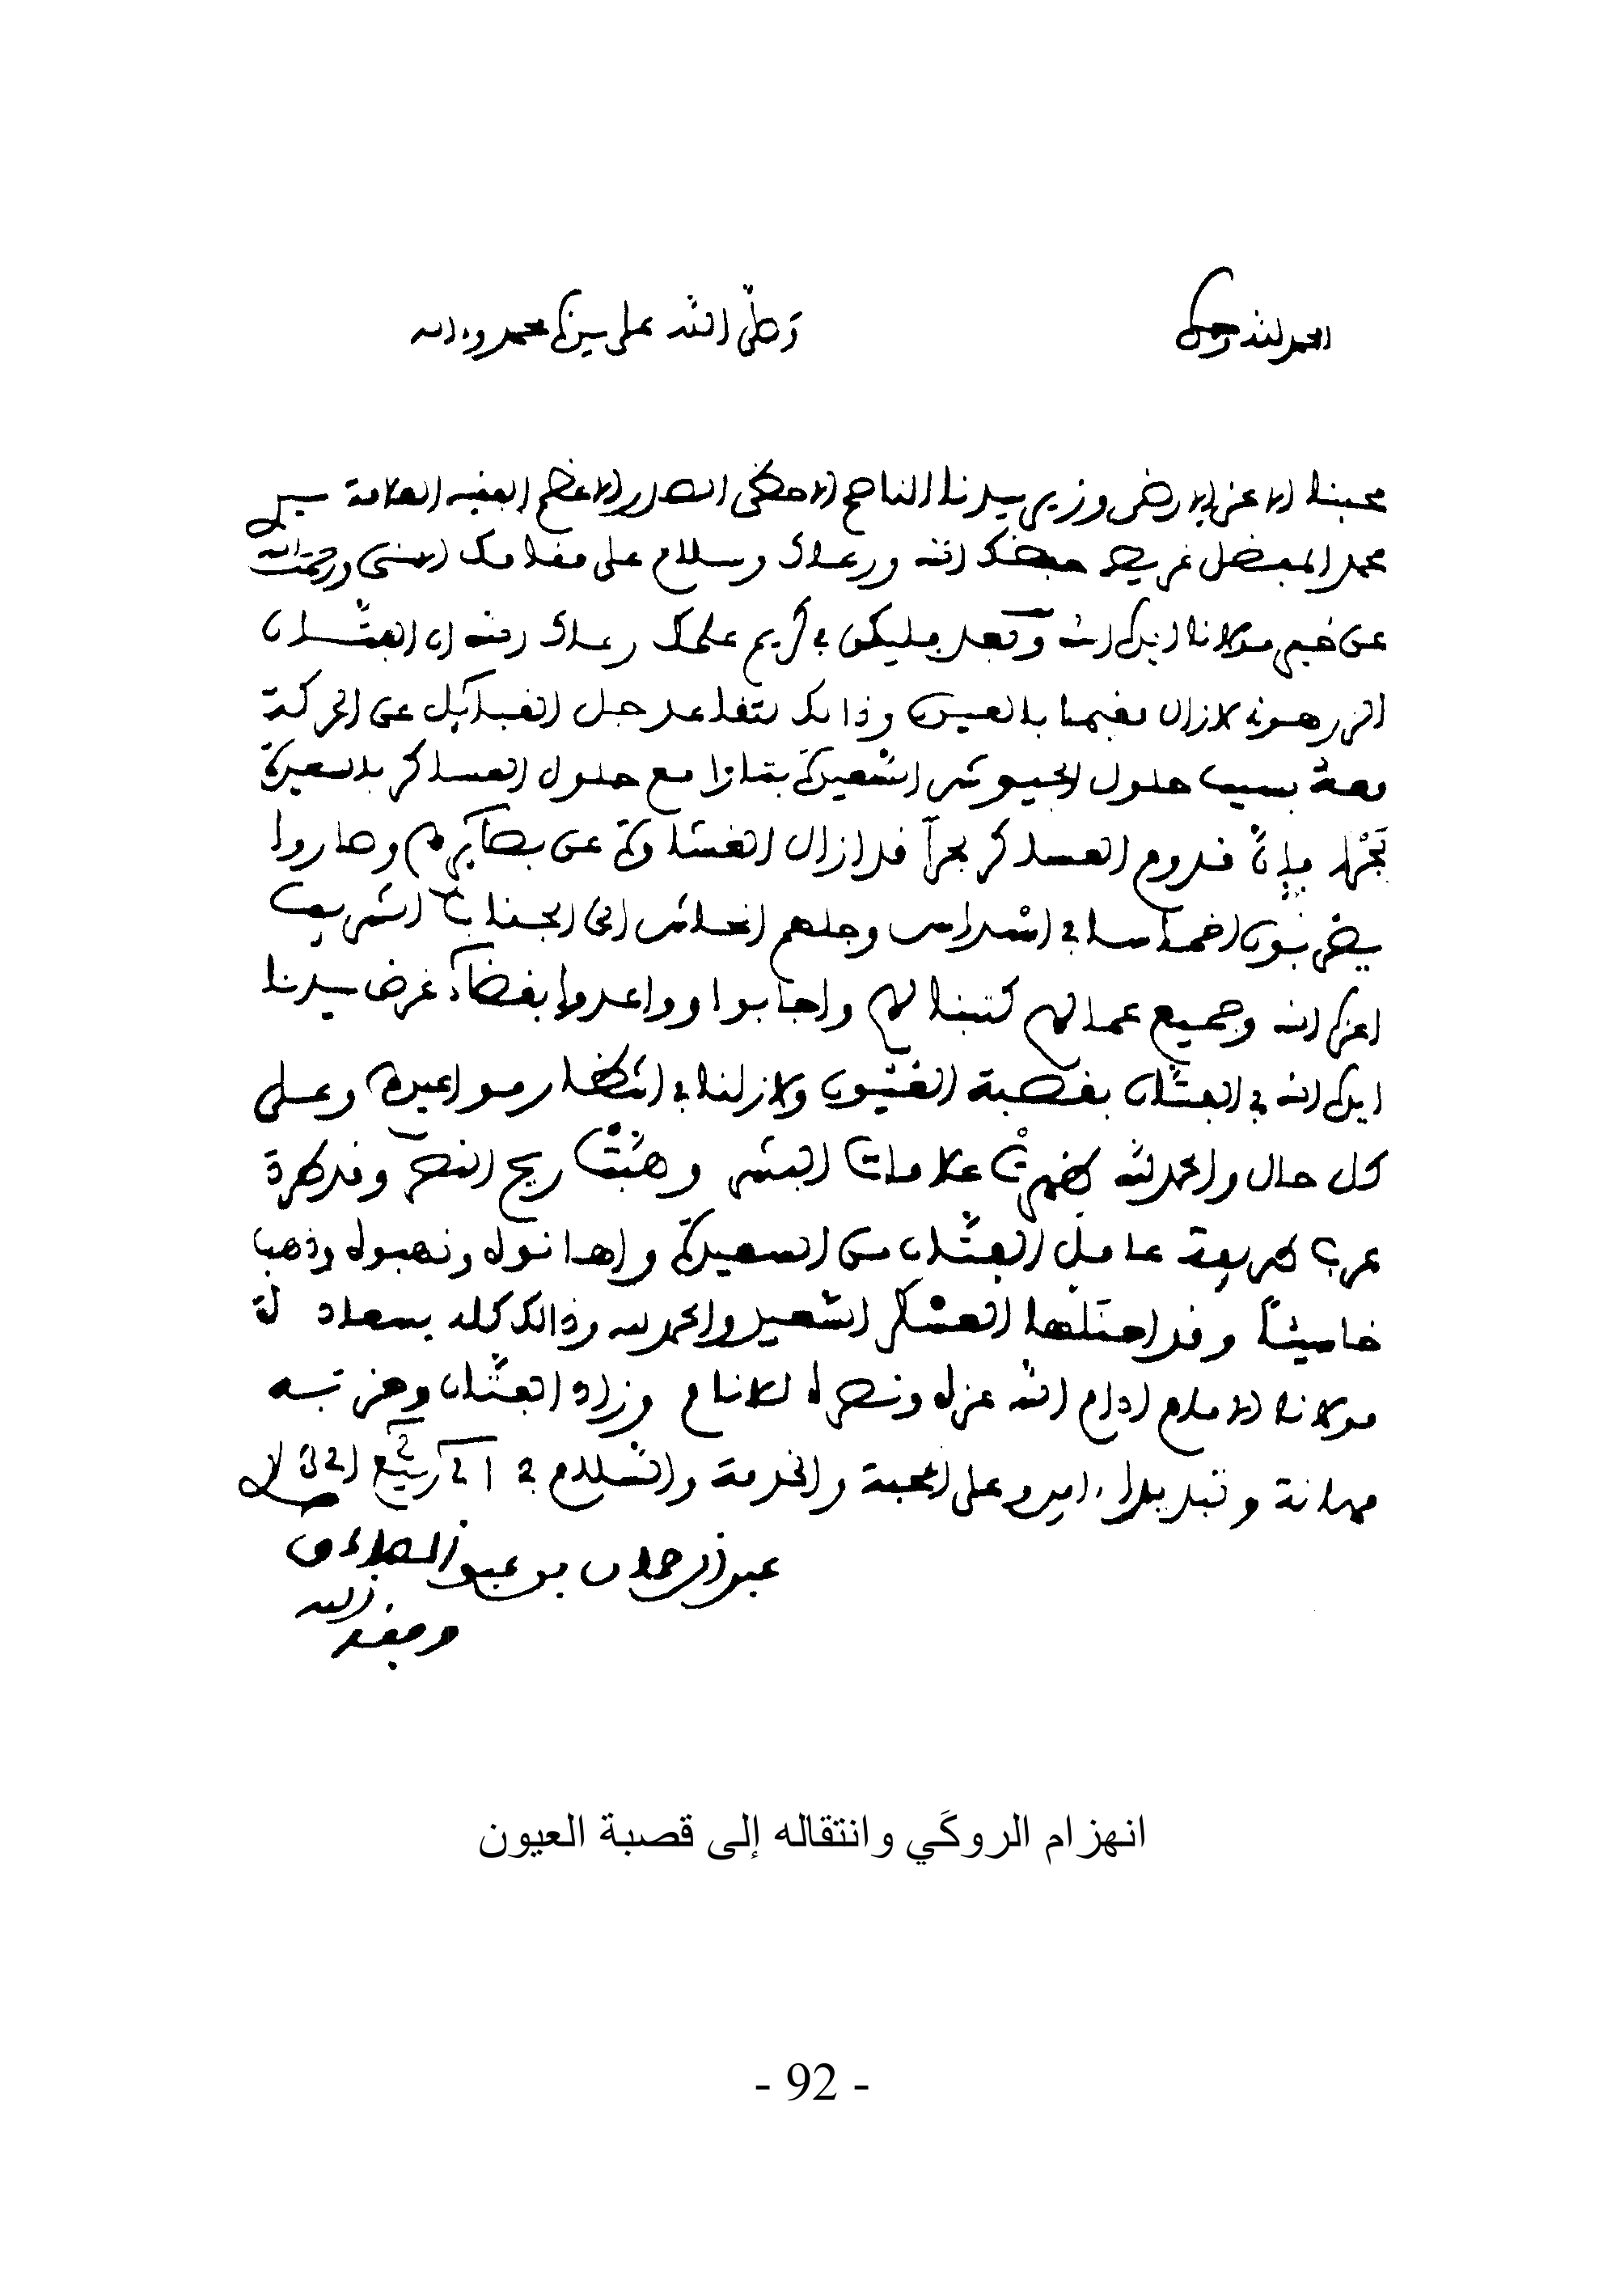 الحمد لله وحده
وصلى الله على سيدنا محمد وءاله
محبنا الاعز الارضى وزير سيدنا الناصح الاحظى الصدر الاعظم الفقيه العلامة سيدي
محمد المفضل غريط حفظك الله ورعاك وسلام على مقامك الاسنى ورحمت الله
عن خير مولانا ايده الله وبعد فليكن في كريم علمك رعاك الله ان الفتان
الزرهونى لازال مقيما بالعيون وذالك لتقاعد جل القبايل عن الحركة
معه بسبب حلول الجيوش السعيدة بتازا مع حلول العساكر بالسعيدة
بحرا فإن قدوم العساكر بحرا قد ازال الغشاوة عن بصآئرهم وصاروا
يضربون اخماسا في اسداس وجلهم انحاش الى الجناب الشريف
اعزه الله وجميع عمالهم كتبنا لهم واجابوا وواعدوا بقضآء غرض سيدنا
ايده الله في الفتان بقصبة العيون ولازلنا في انتظار مواعيدهم وعلى
كل حال والحمد لله ظهرت علامات البشر وهبت ريح النصر وقد طردة
عرب طريفة عامل الفتان من السعيدة واهانوه ونهبوه وذهب
خاسئا وقد احتلها العسكر السعيد والحمد لله وذالك كله بسعادة
مولانا الامام ادام الله عزه ونصره للانام وزاد الفتان وحزبه
مهانة وتبديدا ءامين وعلى المحبة والخدمة والسلام في 21 ربيع 2
عبد الرحمان بن عبد الصادق
وفقه الله
انهزام الروكَي وانتقاله إلى قصبة العيون
- 92 -